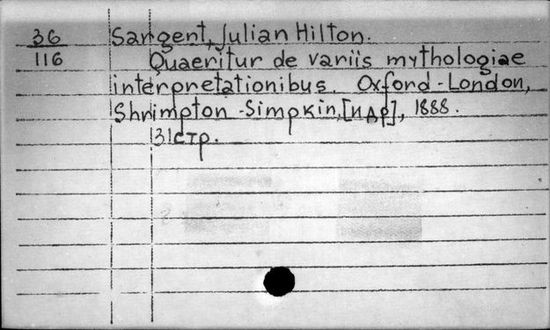 36 Sargent, Julian Hilton.
116 Quaeritur de variis mythologiae
interpretationibus. Oxford-London,
Shrimpton-Simpkin,[идр], 1888.
31стр.